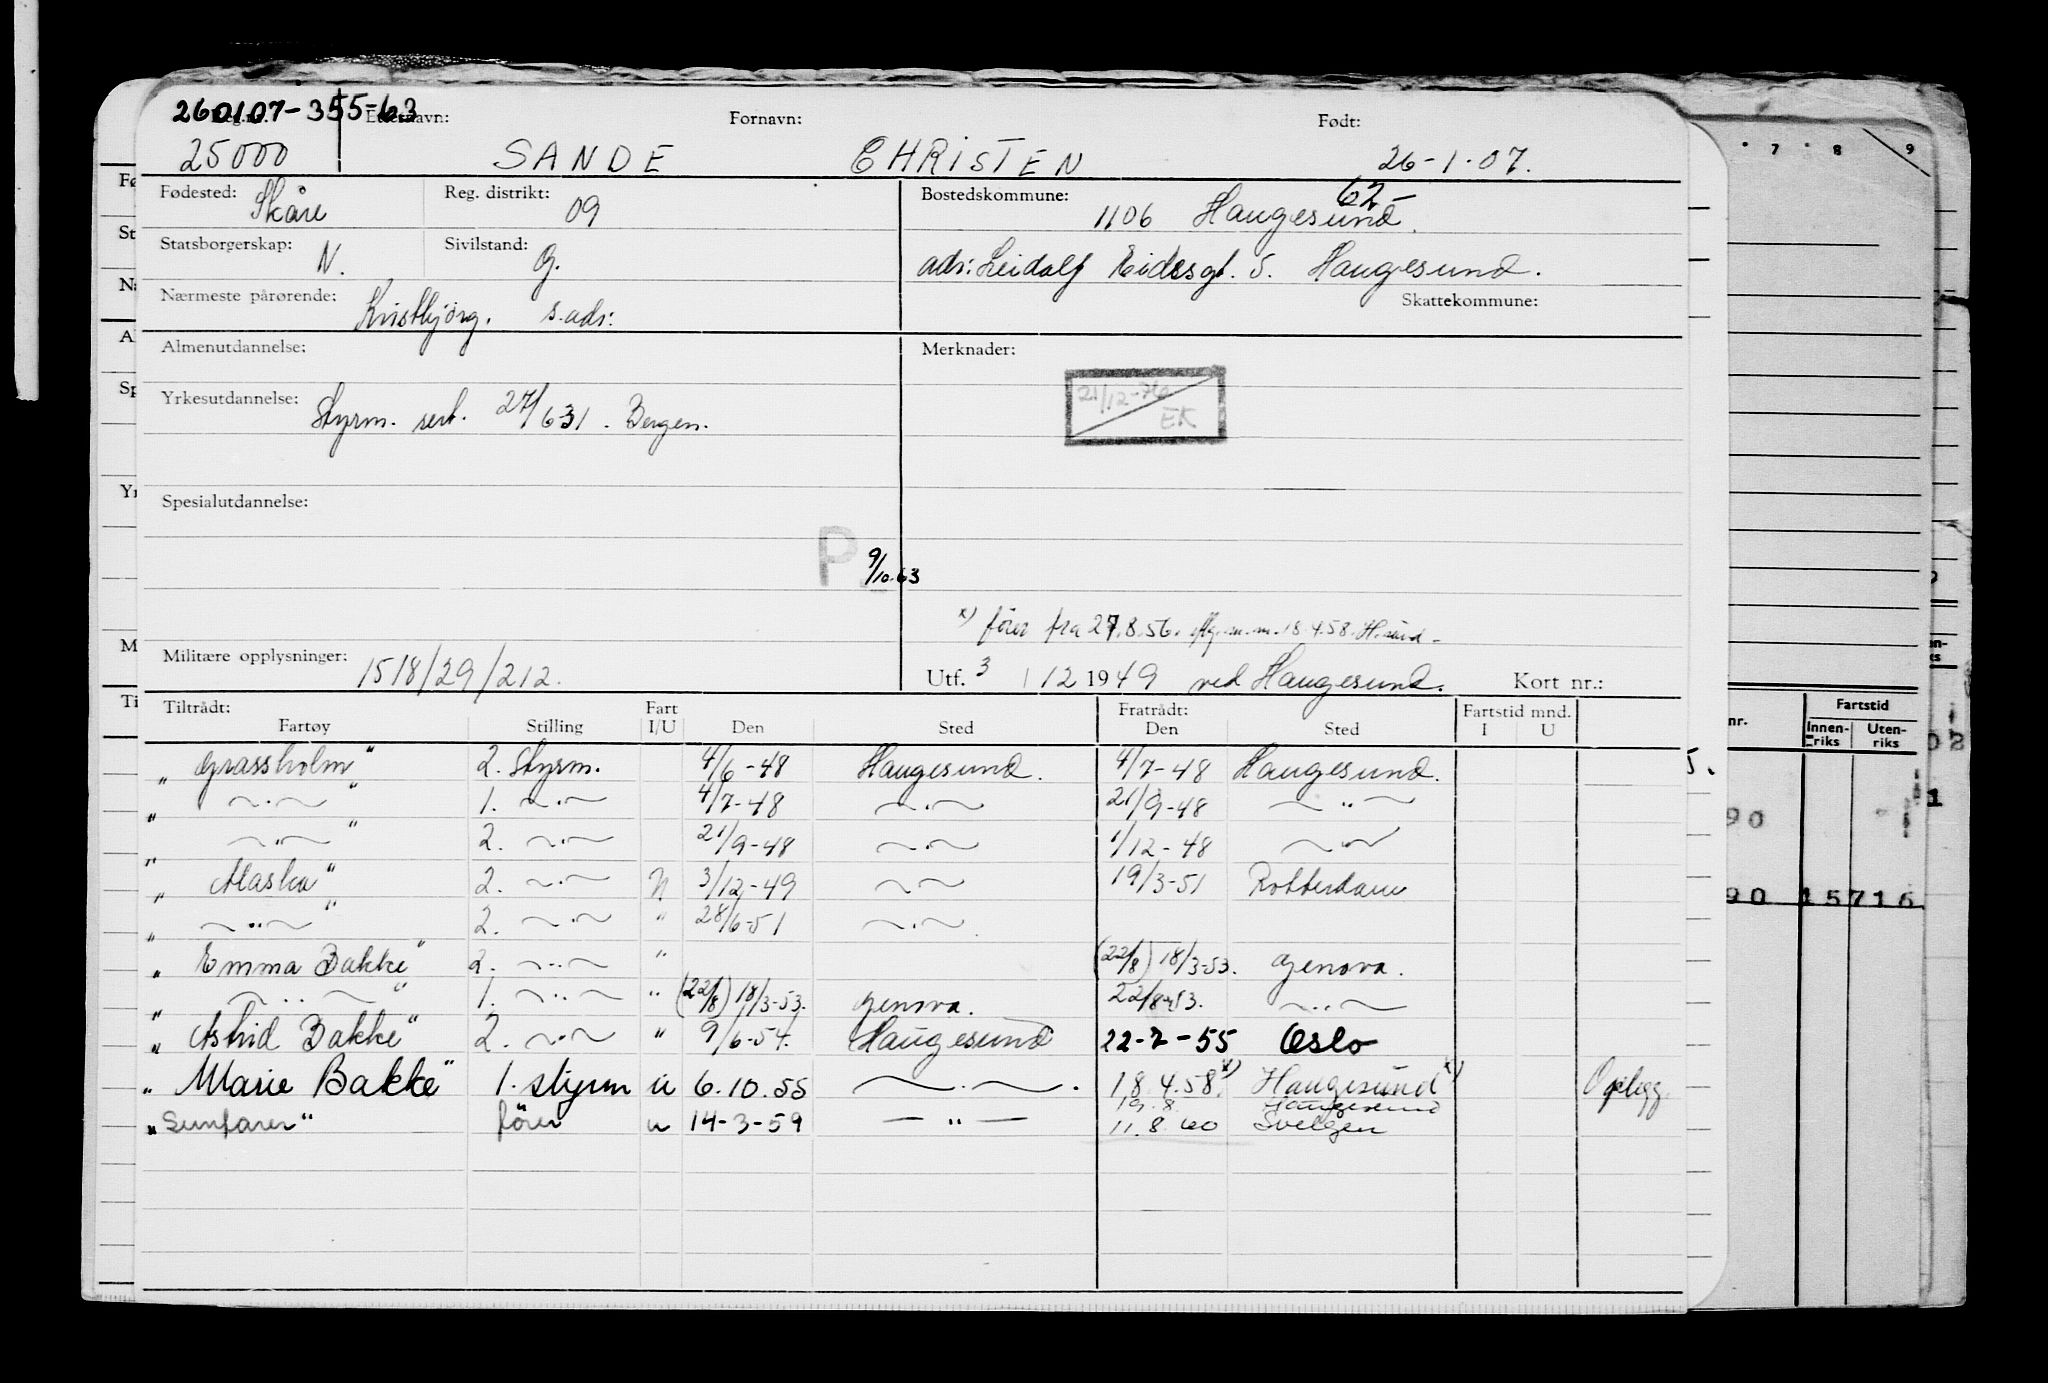 260107-355-63
Reg.nr. Etternavn: Fornavn: Født:
25000 SANDE CHRISTEN 26-1-07.
Fødested: Skåre Reg. distrikt: 09 Bostedskommune: 62-
1106 Haugesund.
Statsborgerskap: N. Sivilstand: G.
adr: Leidolf Eidesgt. 5. Haugesund.
Nærmeste pårørende: Kristbjörg. s. adr: Skattekommune:
Almenutdannelse: Merknader:
21/12-76
EK
Yrkesutdannelse: Styrm. sert. 27/6 31. Bergen.
Spesialutdannelse:
P 9/10.63
x) förer fra 27.8.56. m.m. 18.4.58. H.sund-
Militære opplysninger: 1518/29/212. Utf. 3/12 1949 ved Haugesund. Kort nr.:
Tiltrådt: Fart Fratrådt: Fartstid mnd.
Fartøy Stilling I/U Den Sted Den Sted I U
"Grassholm" 2. Styrm. 4/6-48 Haugesund. 4/7-48 Haugesund.
" ~.~ " 1. ~.~ 4/7-48 ~.~ 21/9-48 ~"~
" ~.~ " 2. ~.~ 21/9-48 ~.~ 1/12-48 ~"~
"Alaska" 2. ~.~ U 3/12-49 ~.~ 19/3-51 Rotterdam
" ~..~ " 2. ~.~ " 28/6-51 ~.~
"Emma Bakke" 2. ~..~ " (22/8) 18/3-53. Genova.
" ~..~ " 1. ~..~ " (22/8) 18/3-53. Genova. 22/8-53. ~..~
"Astrid Bakke" 2. ~.~ " 9/6-54. Haugesund 22-2-55 Oslo
"Marie Bakke" 1. styrm u 6.10.55 ~.~. 18.4.58. x) Haugesund x) Opplegg.
19.8 Haugesund
"Sunfarer" förer u 14-3-59 — " — 11.8.60 Svelgen
7 8 9
nr. Fartstid
Innen-riks Uten-riks
90
90 15716